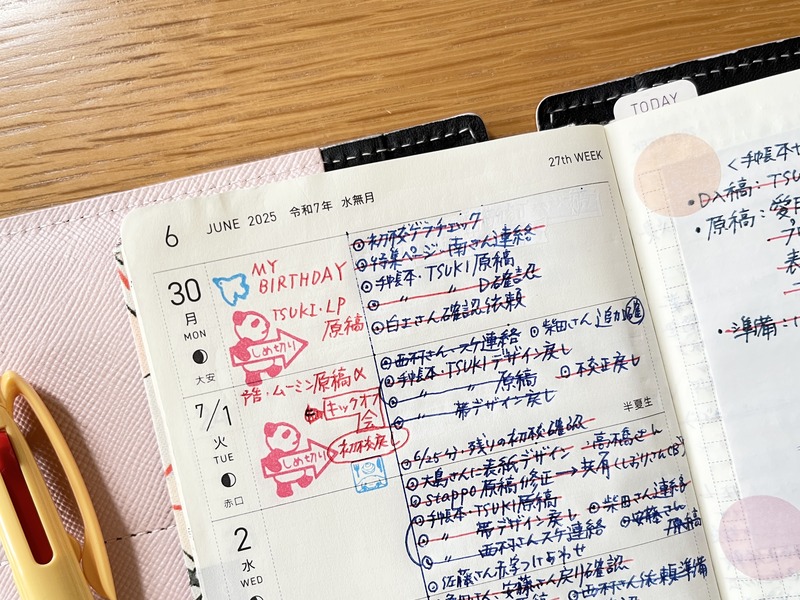 TODAY
27th WEEK
6 JUNE 2025 令和7年 水無月
30
月
MON
大安
MY
BIRTHDAY
TSUKI・LP
原稿
しめ切り
初校ゲラチェック
特集ページ・南さん連絡
手帳本・TSUKI原稿
〃 〃 D確認
白土さん確認依頼
7/1
火
TUE
赤口
半夏生
ムーミン原稿
キックオフ
会
しめ切り
初校戻し
西村さんスケ連絡 柴田さん追加確
手帳本・TSUKIデザイン戻し
〃 〃 原稿 不交正戻し
〃 帯デザイン戻し
2
水
WED
6/25分・残りの初校確認 高橋さん
大島さんに表紙デザイン
stappo原稿修正→共有
手帳本・TSUKI原稿 柴田さん連絡
〃 帯デザイン戻し 安藤さん
〃 西村さんスケ連絡 原稿
佐藤さん赤字つけあわせ
安藤さん戻り確認
西村さん依頼準備
<手帳本
・D入稿：TSU
・原稿：愛用
表
・準備：